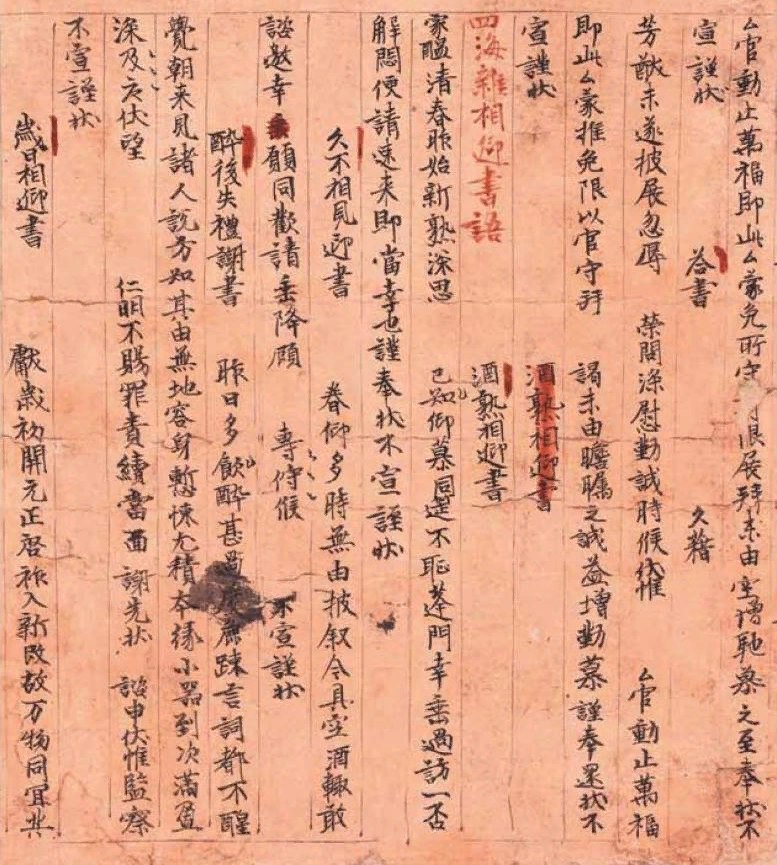 厶官動止萬福即此厶蒙免所守限展拜未由空增馳慕之至奉狀不
宣謹狀 荅書 久稽
芳猷未遂披展忽辱 榮問深慰勤誠時候伏惟 厶官動止萬福
即此厶蒙推免限以官守拜謁未由瞻矚之誠益增勤慕謹奉還狀不
宣謹狀 酒熟相迎書
四海雜相迎書語 酒熟相迎書
家醞清春昨始新熟深思 已知仰慕同送不恥蓬門幸垂過訪一否
解悶便請速來即當幸也謹奉狀不宣謹狀
久不相見迎書 眷仰多時無由披叙今具空酒輙敢
諮邀幸願同歡請垂降顧 專侍候 不宣謹狀
醉後失禮謝書 昨日多飲醉甚過度麁踈言詞都不醒
覺朝來見諸人說方知其由無地容身慙悚尤積本緣小器到次滿盈
深及尤伏望 仁明不賜罪責續當面 謝先狀 諮申伏惟監察
不宣謹狀
歲日相迎書 獻歲初開元正啓祚入新改故万物同宜共